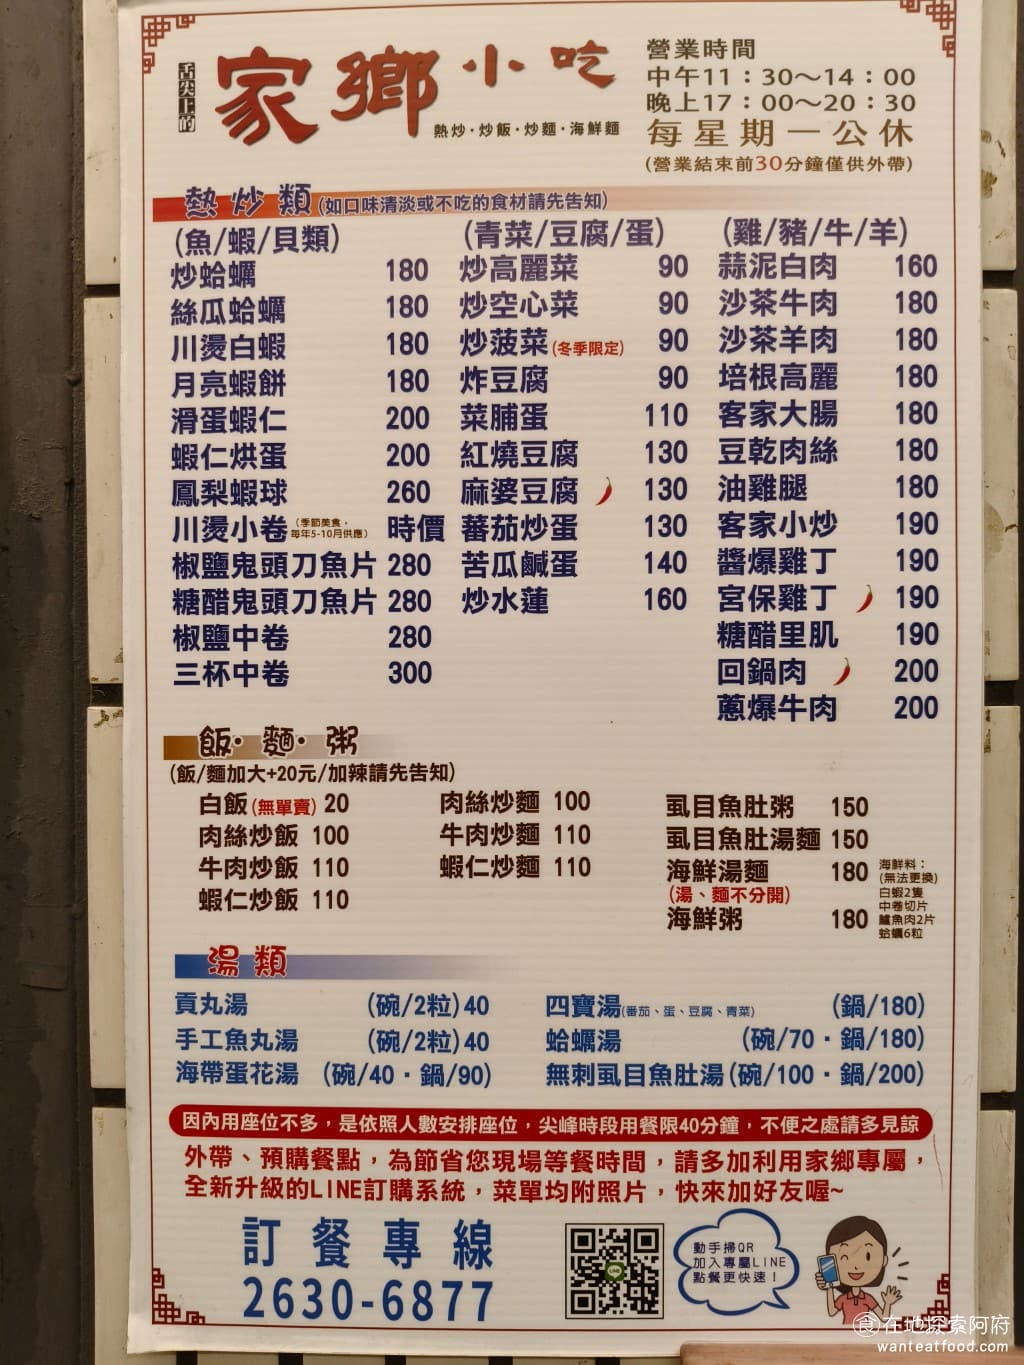 舌尖上的
家鄉小吃
熱炒·炒飯·炒麵·海鮮麵
營業時間
中午11：30～14：00
晚上17：00～20：30
每星期一公休
(營業結束前30分鐘僅供外帶)
熱炒類(如口味清淡或不吃的食材請先告知)
(魚/蝦/貝類)
炒蛤蠣 180
絲瓜蛤蠣 180
川燙白蝦 180
月亮蝦餅 180
滑蛋蝦仁 200
蝦仁烘蛋 200
鳳梨蝦球 260
川燙小卷(季節美食，每年5-10月供應) 時價
椒鹽鬼頭刀魚片 280
糖醋鬼頭刀魚片 280
椒鹽中卷 280
三杯中卷 300
(青菜/豆腐/蛋)
炒高麗菜 90
炒空心菜 90
炒菠菜(冬季限定) 90
炸豆腐 90
菜脯蛋 110
紅燒豆腐 130
麻婆豆腐 130
蕃茄炒蛋 130
苦瓜鹹蛋 140
炒水蓮 160
(雞/豬/牛/羊)
蒜泥白肉 160
沙茶牛肉 180
沙茶羊肉 180
培根高麗 180
客家大腸 180
豆乾肉絲 180
油雞腿 180
客家小炒 190
醬爆雞丁 190
宮保雞丁 190
糖醋里肌 190
回鍋肉 200
蔥爆牛肉 200
飯·麵·粥
(飯/麵加大+20元/加辣請先告知)
白飯(無單賣) 20
肉絲炒飯 100
牛肉炒飯 110
蝦仁炒飯 110
肉絲炒麵 100
牛肉炒麵 110
蝦仁炒麵 110
虱目魚肚粥 150
虱目魚肚湯麵 150
海鮮湯麵 180
(湯、麵不分開)
海鮮粥 180
海鮮料：
(無法更換)
白蝦2隻
中卷切片
鱸魚肉2片
蛤蠣6粒
湯類
貢丸湯 (碗/2粒)40
手工魚丸湯 (碗/2粒)40
海帶蛋花湯 (碗/40·鍋/90)
四寶湯(番茄、蛋、豆腐、青菜) (鍋/180)
蛤蠣湯 (碗/70·鍋/180)
無刺虱目魚肚湯(碗/100·鍋/200)
因內用座位不多，是依照人數安排座位，尖峰時段用餐限40分鐘，不便之處請多見諒
外帶、預購餐點，為節省您現場等餐時間，請多加利用家鄉專屬，
全新升級的LINE訂購系統，菜單均附照片，快來加好友喔~
訂餐專線
2630-6877
LINE
動手掃QR
加入專屬LINE
點餐更快速！
食在地探索阿府
wanteatfood.com